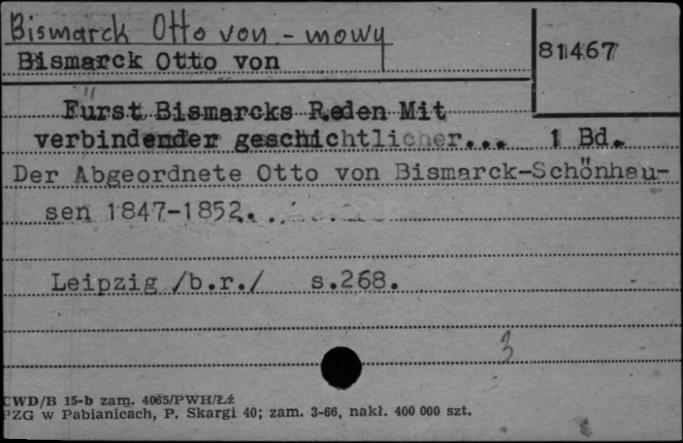 Bismarck Otto von - mowy
Bismarck Otto von
81467
Fürst Bismarcks Reden Mit
verbindender geschichtlicher... 1 Bd.
Der Abgeordnete Otto von Bismarck-Schönhau-
sen 1847-1852.
Leipzig /b.r./ s.268.
3
CWD/B 15-b zam. 4065/PWH/Łż
PZG w Pabianicach, P. Skargi 40; zam. 3-66, nakł. 400 000 szt.